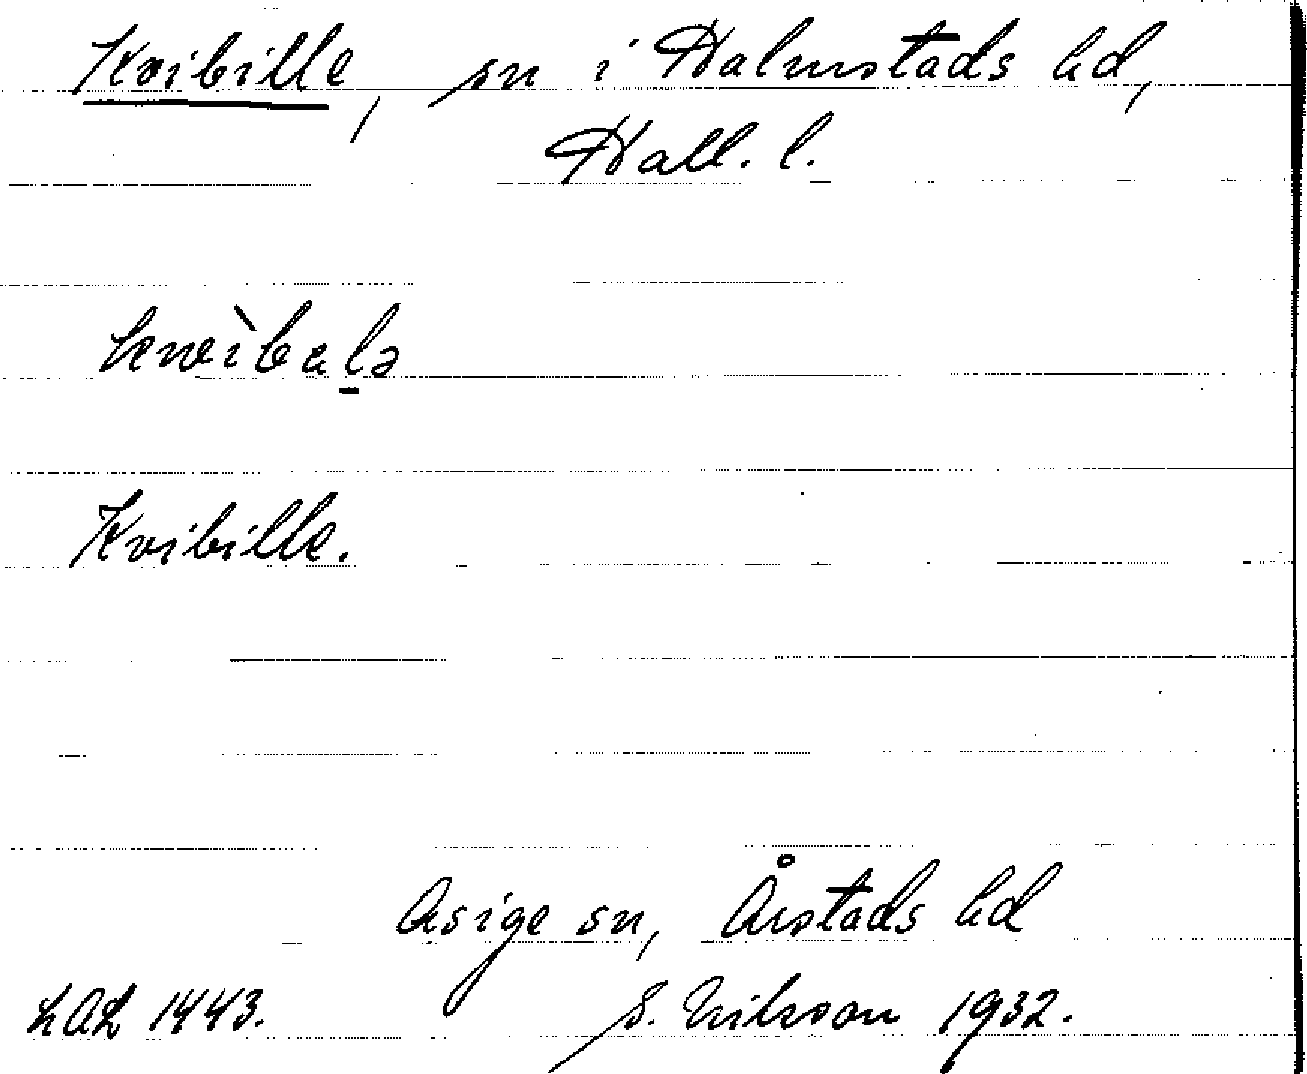 Kvibille, sn i Halmstads hd,
Hall. l.
kwìbalə
Kvibille.
Asige sn, Årstads hd
LAL 1443. S. Nilsson 1932.